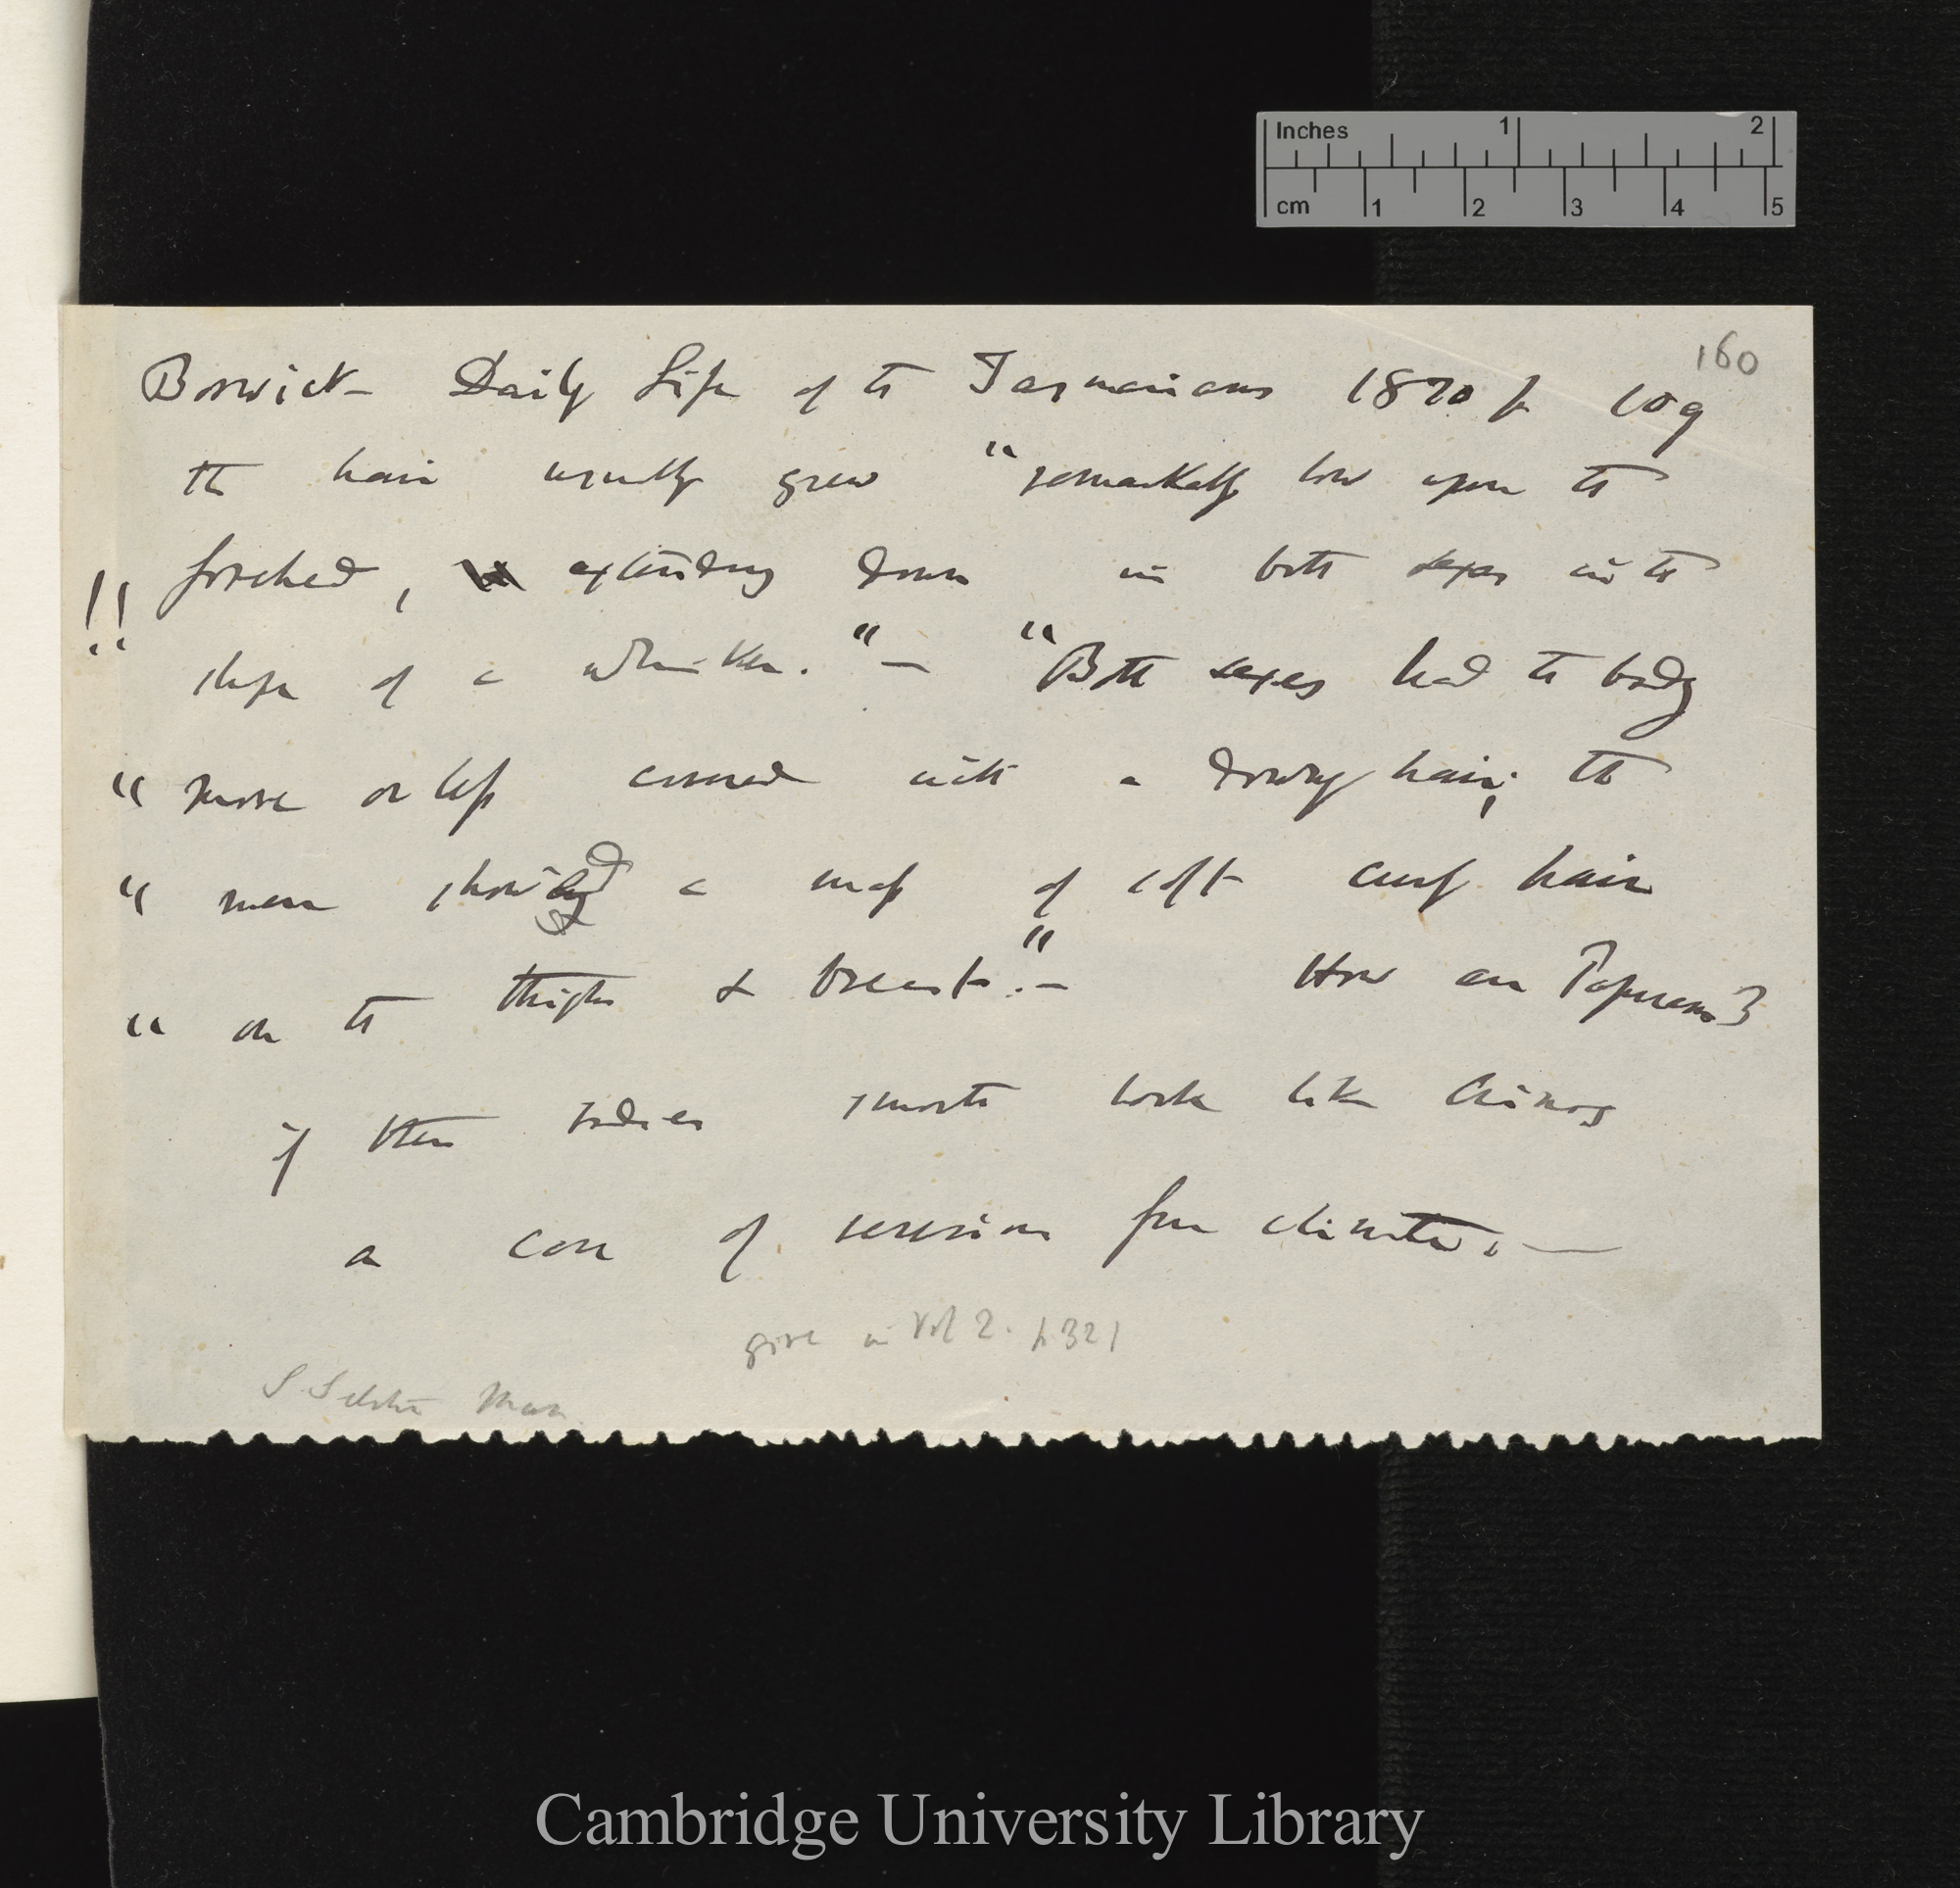 Inches 1 2
cm 1 2 3 4 5
160
Bonwick Daily Life of the Tasmanians 1870 p 109
the hair usually grew "remarkably low upon the
forehead, extending down in both sexes in the
!! shape of a whisker." — "Both sexes had the body
" more or less covered with a downy hair; the
" men showed a mass of soft curly hair
" on the thighs & breast." — How are Papuans?
if their bodies smooth look like
a case of reversion from climate. —
give in Vol 2. p 321
S. Selection Man
Cambridge University Library